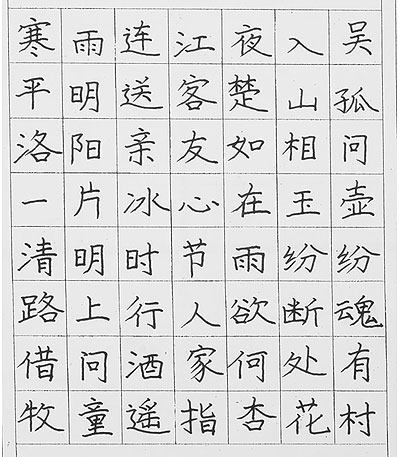 寒雨连江夜入吴
平明送客楚山孤
洛阳亲友如相问
一片冰心在玉壶
清明时节雨纷纷
路上行人欲断魂
借问酒家何处有
牧童遥指杏花村